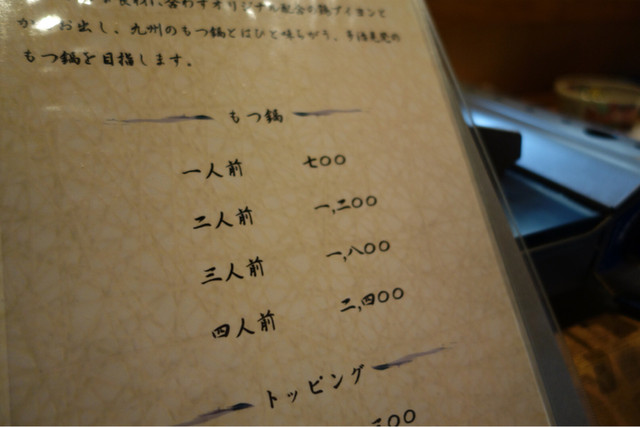 オリジナル配合の鶏ブイヨンと
かつお出し、九州のもつ鍋とはひと味ちがう、
もつ鍋を目指します。
もつ鍋
一人前 七〇〇
二人前 一,二〇〇
三人前 一,八〇〇
四人前 二,四〇〇
トッピング
〇〇